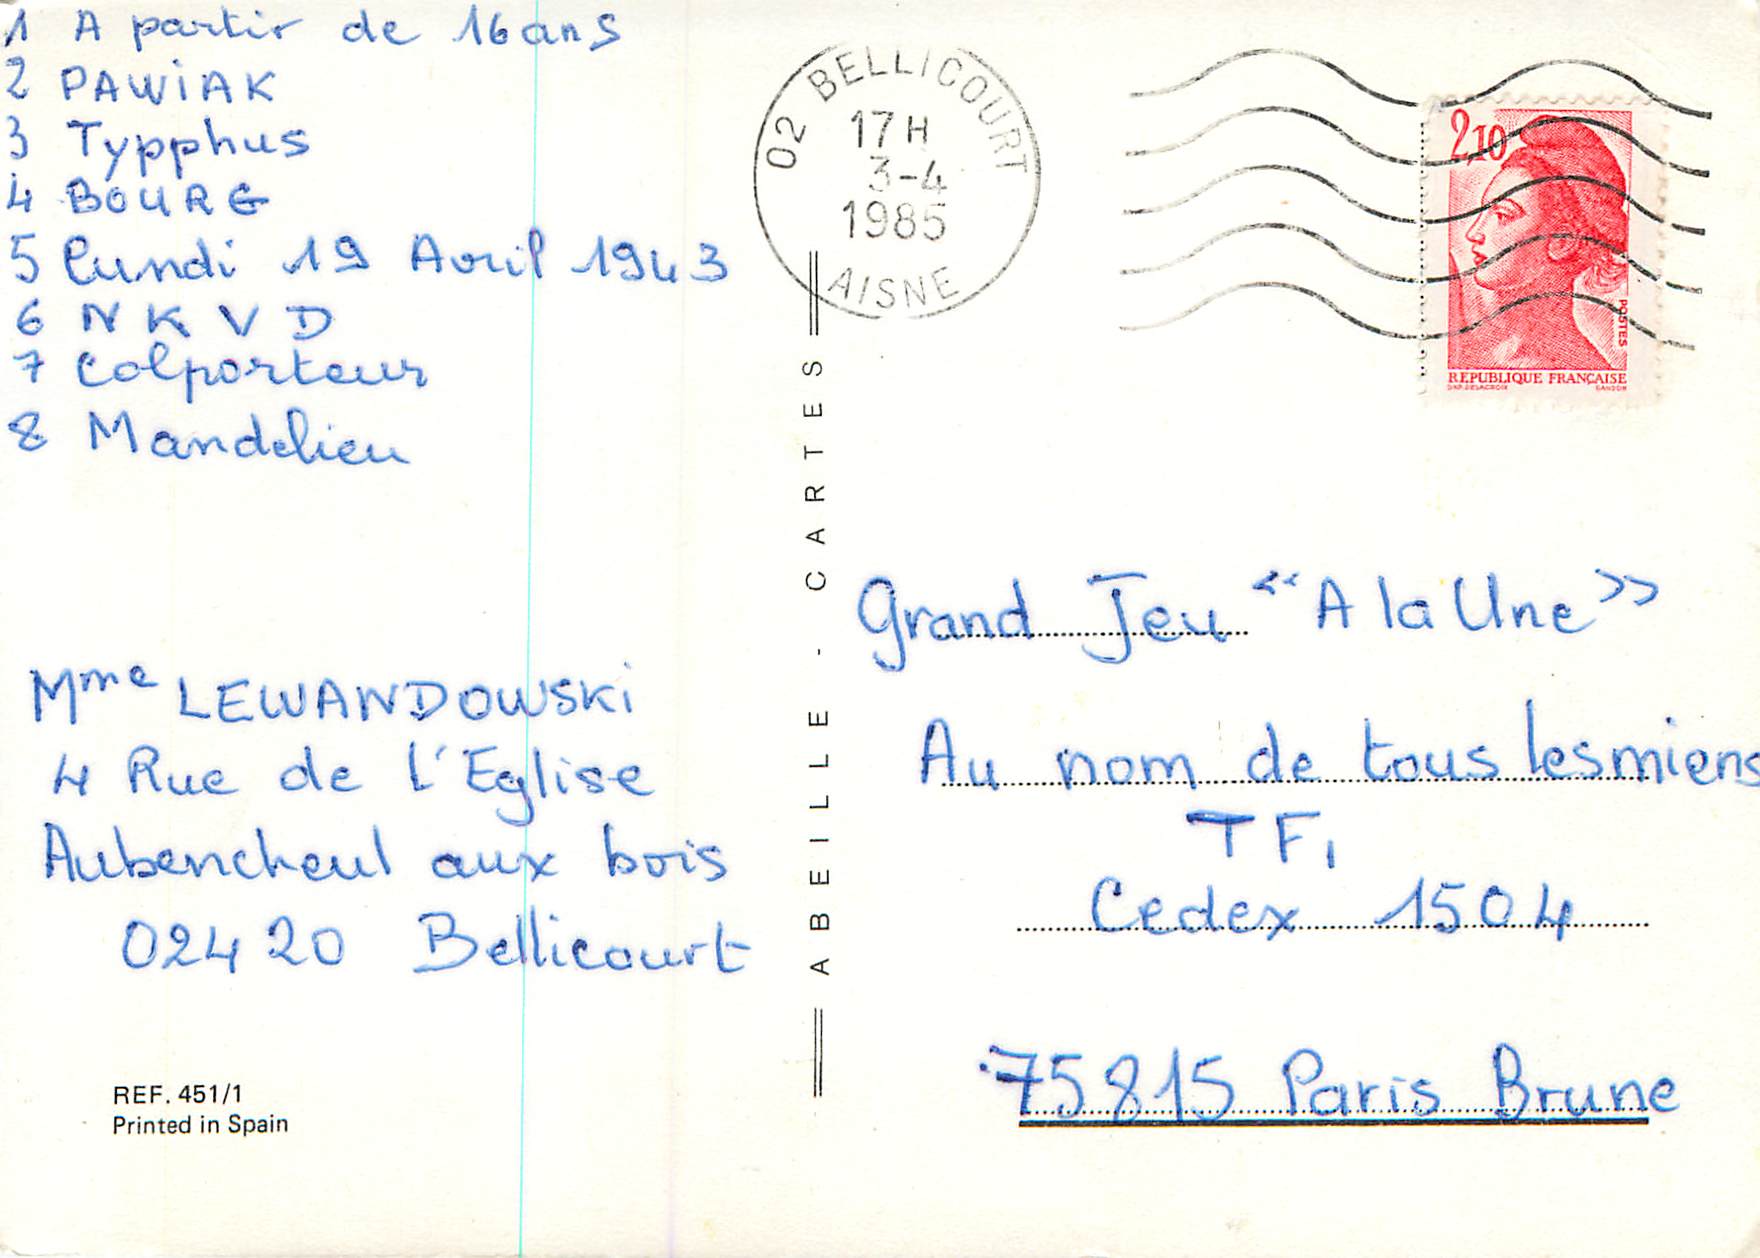 1 A partir de 16 ans
2 PAWiAK
3 Typphus
4 BOURG
5 lundi 19 Avril 1943
6 N K V D
7 Colporteur
8 Mandelieu
Mme LEWANDOWSKi
4 Rue de l'Eglise
Aubencheul aux bois
02420 Bellicourt
REF. 451/1
Printed in Spain
ABEILLE - CARTES
02 BELLICOURT
17 H
3-4
1985
AISNE
2,10
POSTES
REPUBLIQUE FRANÇAISE
D'AP. DELACROIX GANDON
Grand Jeu "A la Une"
Au nom de tous les miens
TF1
Cedex 1504
75815 Paris Brune